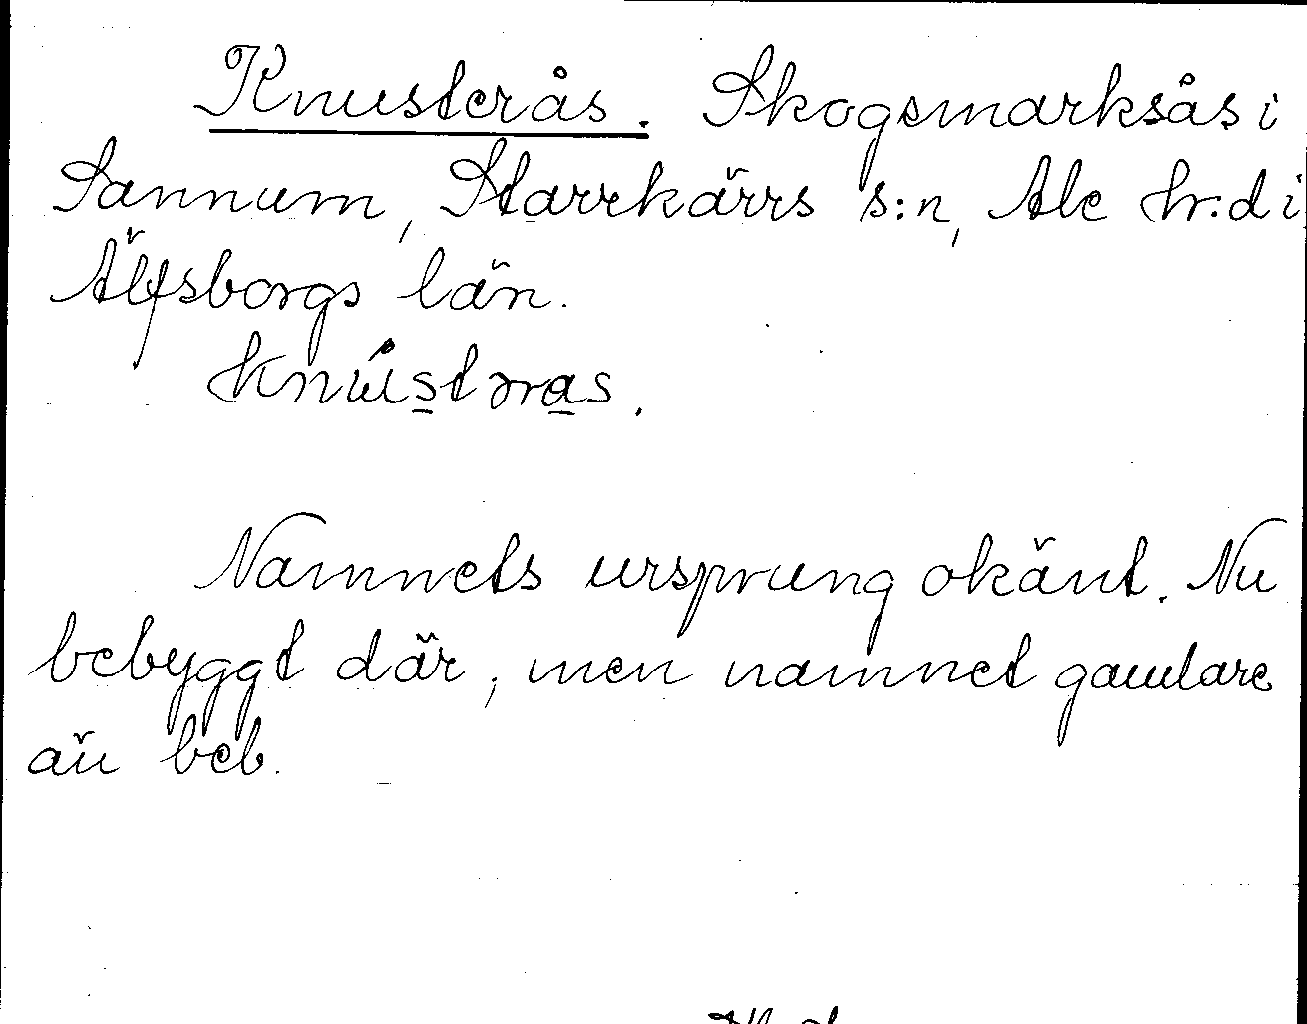 Knusterås. Skogsmarksås i
Sannum, Starrkärrs s:n, Ale hr:d i
Älfsborgs län.
knústəras.
Namnets ursprung okänt. Nu
bebyggt där, men namnet gamlare
än beb.